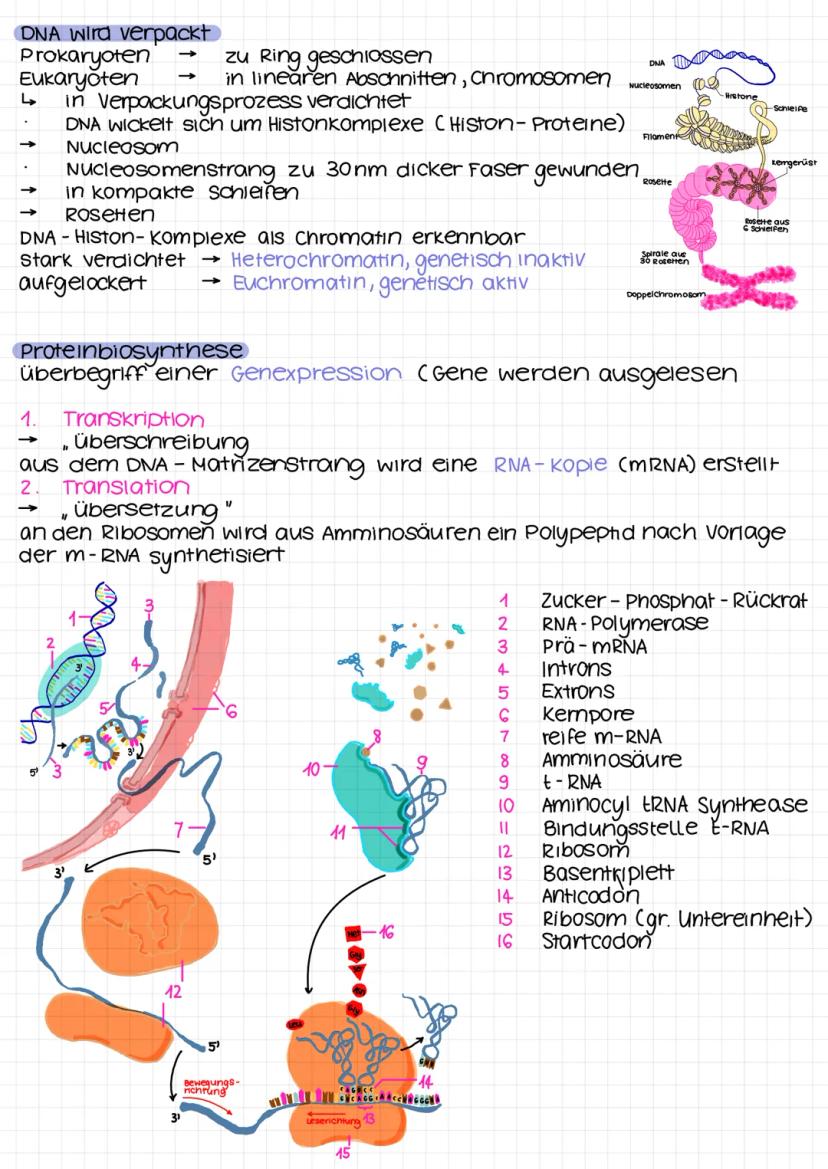 DNA wird verpackt
Prokaryoten → zu Ring geschlossen
Eukaryoten → in linearen Abschnitten, Chromosomen
↳ in Verpackungsprozess verdichtet
· DNA wickelt sich um Histonkomplexe (Histon-Proteine)
→ Nucleosom
· Nucleosomenstrang zu 30nm dicker Faser gewunden
→ in kompakte Schleifen
→ Rosetten
DNA-Histon-Komplexe als Chromatin erkennbar
stark verdichtet → Heterochromatin, genetisch inaktiv
aufgelockert → Euchromatin, genetisch aktiv
DNA
Nucleosomen
Histone
Schleife
Filament
Kerngerüst
Rosette
Rosette aus
6 Schleifen
Spirale aus
30 Rosetten
Doppelchromosom
Proteinbiosynthese
überbegriff einer Genexpression (Gene werden ausgelesen
1. Transkription
→ „überschreibung
aus dem DNA-Matrizenstrang wird eine RNA-Kopie (mRNA) erstellt
2. Translation
→ „übersetzung"
an den Ribosomen wird aus Amminosäuren ein Polypeptid nach Vorlage
der m-RNA synthetisiert
1 Zucker-Phosphat-Rückrat
2 RNA-Polymerase
3 Prä-mRNA
4 Introns
5 Extrons
6 Kernpore
7 reife m-RNA
8 Amminosäure
9 t-RNA
10 Aminocyl tRNA Synthease
11 Bindungsstelle t-RNA
12 Ribosom
13 Basentriplett
14 Anticodon
15 Ribosom (gr. Untereinheit)
16 Startcodon
1
2
3
3'
4
5
6
3'
5'
3
7
5'
3'
12
5'
Bewegungs-
richtung
3'
8
9
10
11
16
Met
Gly
Gly
Leu
14
13
Leserichtung
15